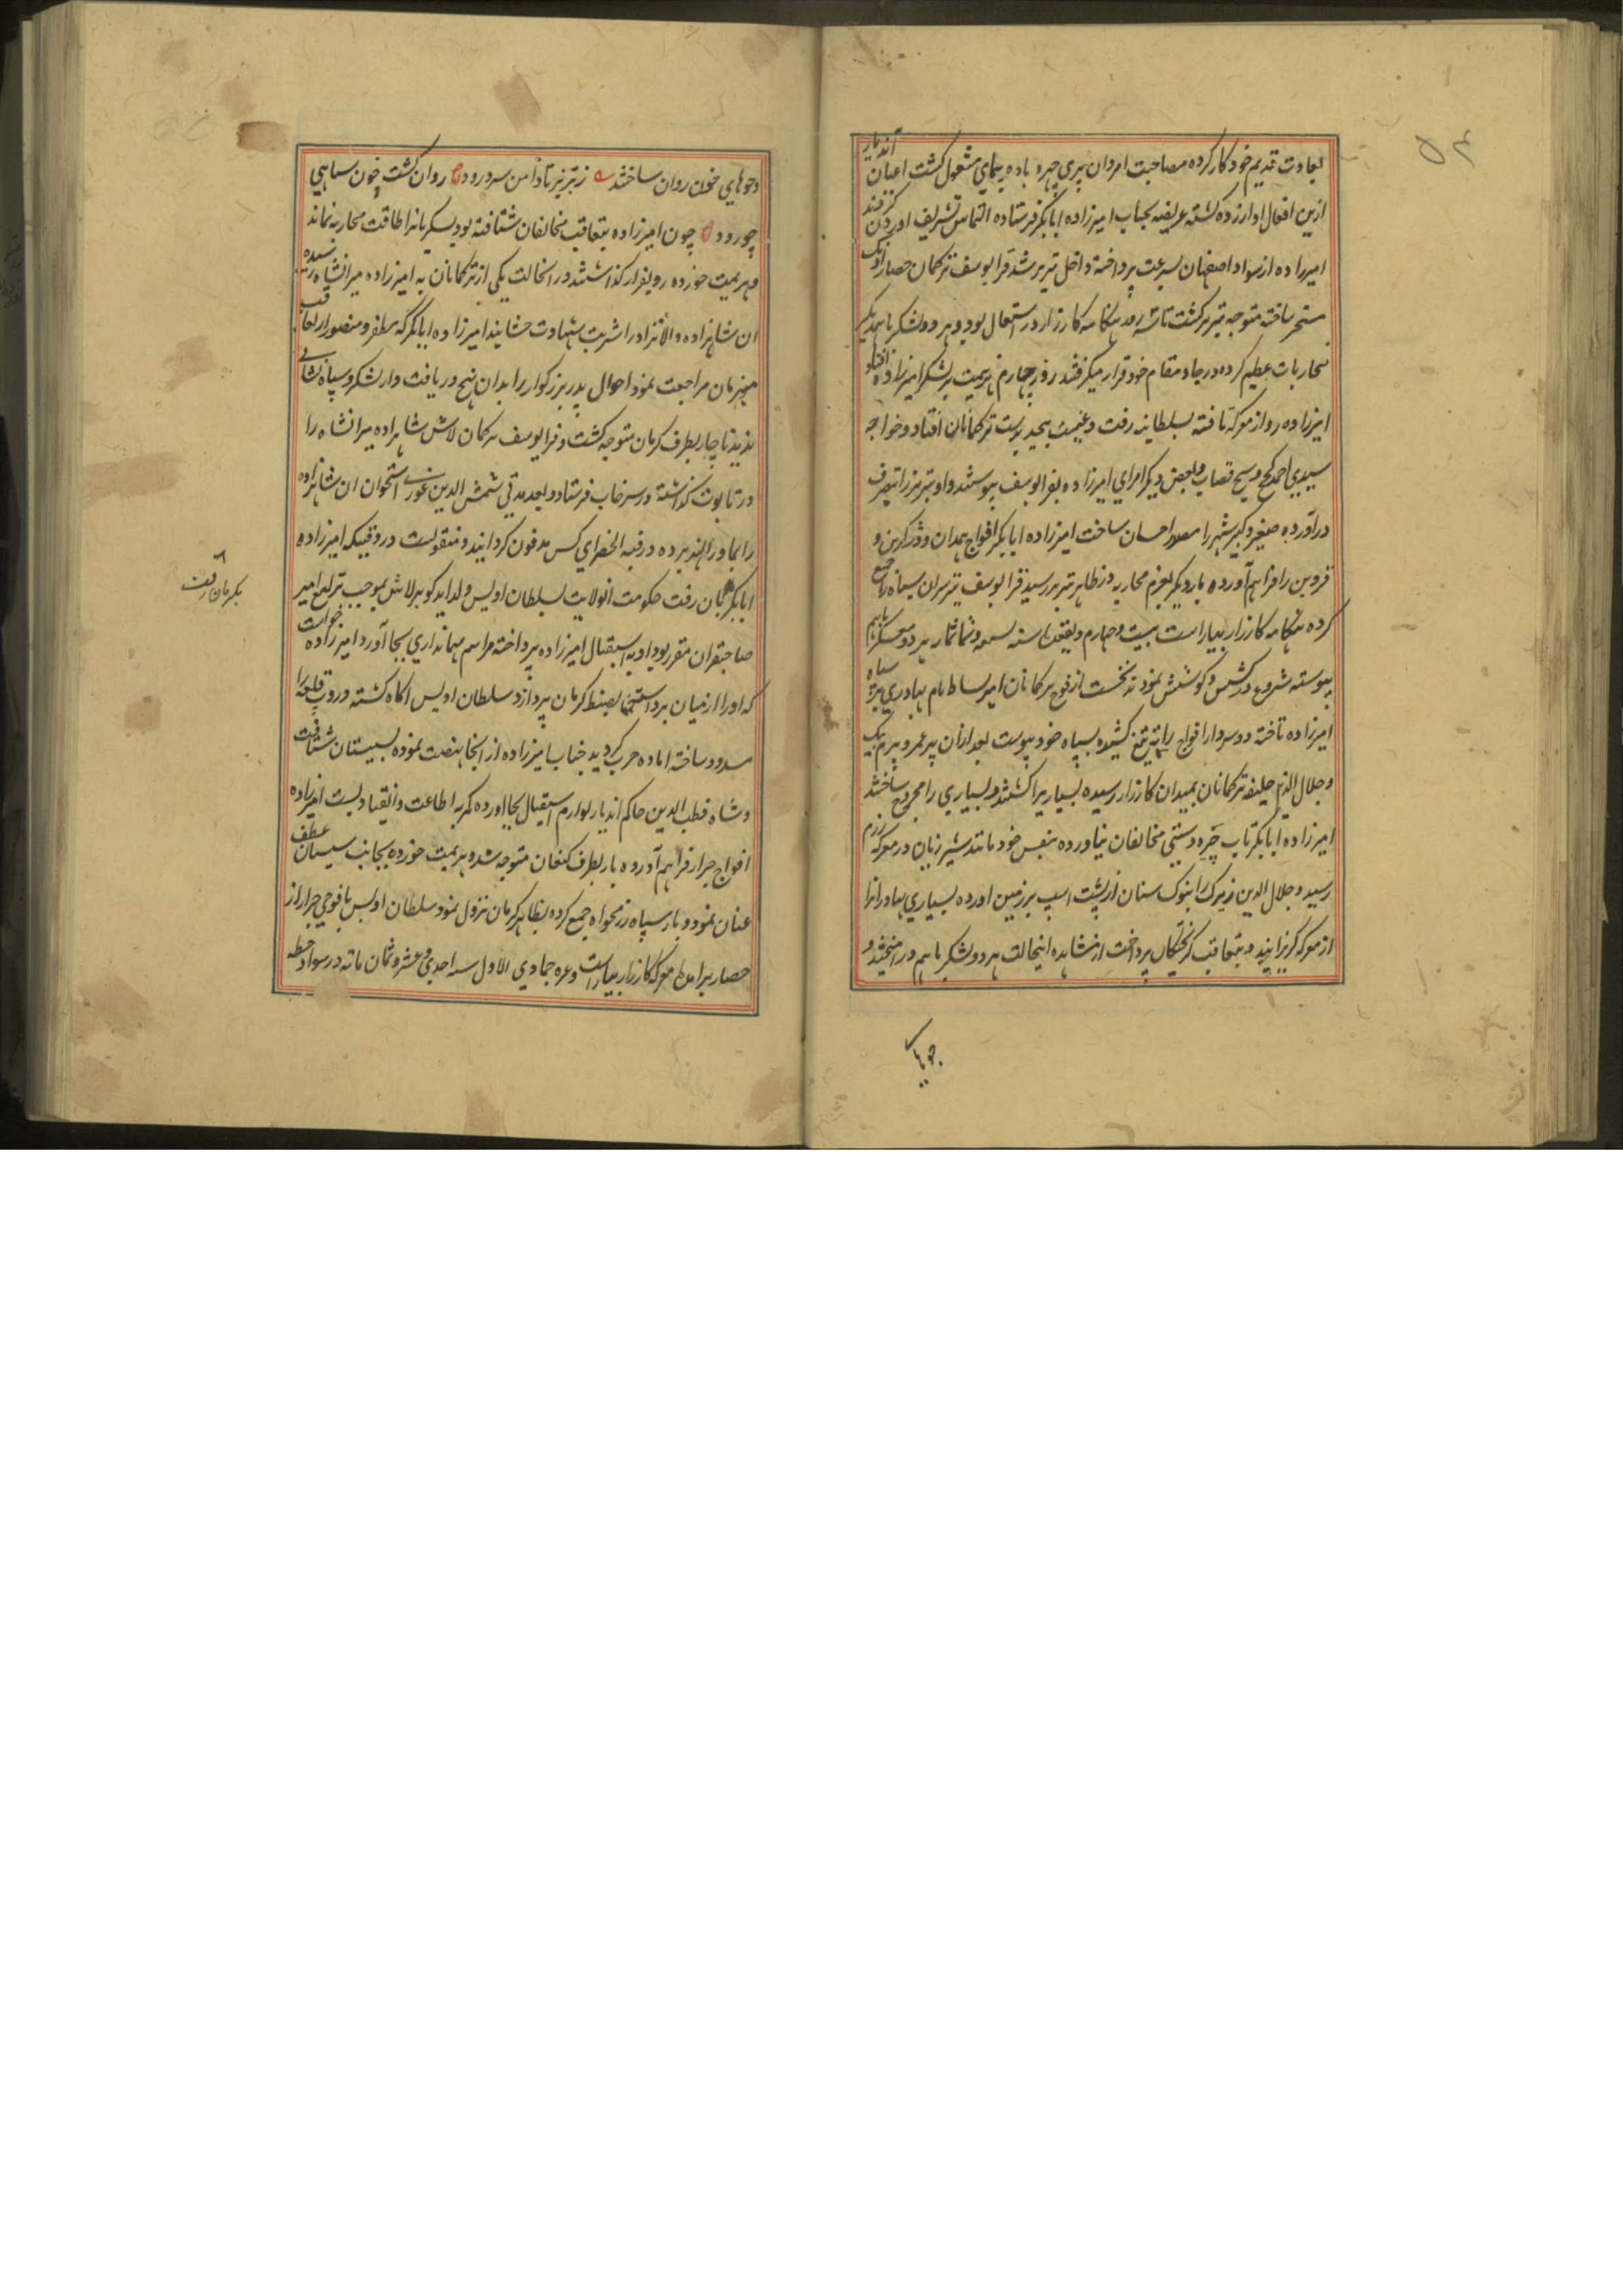 ۵۴
بعادت قدیم خود کار کرده مصاحبت امردان پری چهره و باده پیمای مشغول کشت اعیان آندیار
ازین افعال او ازرده کشته عریضه بجناب امیرزاده ابابکر فرستاده التماس تشریف اوردن کردند
امیرزاده از سواد اصفهان بسرعت پرداخته داخل تبریز شد قرا یوسف ترکمان حصار اونک
مسخر ساخته متوجه تبریز کشت تا سه روز هنکامه کارزار در اشتعال بود و هر دو لشکر با همدیکر
محاربات عظیم کرده در جا و مقام خود قرار میکرفتند روز چهارم هزیمت بر لشکر امیرزاده افتاد
امیرزاده رو از معرکه تافته بسلطانیه رفت و غنیمت بیحد بدست ترکمانان افتاد و خواجه
سیدی احمد کججی و مسیح قصاب و بعضی دیکر امرای امیرزاده بقرا یوسف پیوستند و او تبریز را بتصرف
درآورده صغیر و کبیر شهر را مورد احسان ساخت امیرزاده ابابکر افواج همدان و درکزین و
قزوین را فراهم آورده بار دیکر بعزم محاربه در ظاهر تبریز رسید قرا یوسف نیز سران سپاه را جمع
کرده هنکامه کارزار بیاراست بیست و چهارم ذیقعده سنه تسعه و ثمانمائه هر دو عسکر باهم
پیوسته شروع در کشش و کوشش نمودند نخست از فوج ترکمانان امیر بساط نام بهادری بر سپاه
امیرزاده تاخته دو سردار افواج را ته تیغ کشیده بسپاه خود پیوست بعد ازان پیر عمر و بیرم بیک
و جلال الدین خلیفه ترکمانان بمیدان کارزار رسیده بسیاریرا کشتند و بسیاری را مجروح ساختند
امیرزاده ابابکر تاب چیره دستی مخالفان نیاورده بنفس خود مانند شیر ژیان در معرکه رزم
رسید و جلال الدین زیرک را بنوک سنان از پشت اسب بر زمین اورده بسیاری بهادرانرا
از معرکه کریزانید و بتعاقب کریختکان پرداخت از مشاهده اینحالت هر دو لشکر باهم درامیختند و
جویهای
وجوهای خون روان ساختند ز تبریز تا دامن سرد رود روان کشت خون سپاهی
چو رود چون امیرزاده بتعاقب مخالفان شتافته بود لشکریانرا طاقت محاربه نماند
و هزیمت خورده رو بفرار کذاشتند در انحالت یکی از ترکمانان به امیرزاده میرانشاه رسیده
ان شاهزاده والانژاد را شربت شهادت چشانید امیرزاده ابابکر که مظفر و منصور از تعاقب
مجرمان مراجعت نمود احوال پدر بزرکوار را بدان نهج دریافت و از لشکر و سپاه نشانی
ندید ناچار بطرف کرمان متوجه کشت و قرا یوسف ترکمان لاش شاهزاده میرانشاه را
در تابوت کذاشته در سرخاب فرستاد و بعد مدتی شمس الدین غوری استخوان ان شاهزاده
را بماوراالنهر برده در قبه الخضرای کش مدفون کردانید و منقولست در وقتیکه امیرزاده
ابابکر رفت حکومت انولایت بسلطان اویس ولد ایدکو برلاس بموجب یرلیغ امیر
صاحبقران مقرر بود او به استقبال امیرزاده پرداخته مراسم مهمانداری بجا آورد امیرزاده خواست
که او را از میان برداشته بضبط کرمان پردازد سلطان اویس اکاه کشته دروب قلعه را
مسدود ساخته اماده حرب کردید جناب امیرزاده از انجا نهضت نموده بسیستان شتافت
و شاه قطب الدین حاکم اندیار لوازم استقبال بجا اورده کمر به اطاعت و انقیاد بست امیرزاده
افواج جرار فراهم آورده باز بطرف متوجه شد و هزیمت خورده بجانب سیستان عطف
عنان نمود و باز سپاه رزمخواه جمع کرده بظاهر کرمان نزول نمود سلطان اویس با فوجی جرار از
حصار برامده معرکه کارزار بیاراست و غره جمادی الاول سنه احدی و عشر و ثمان مائه در سواد خطه
بکرمان رفت